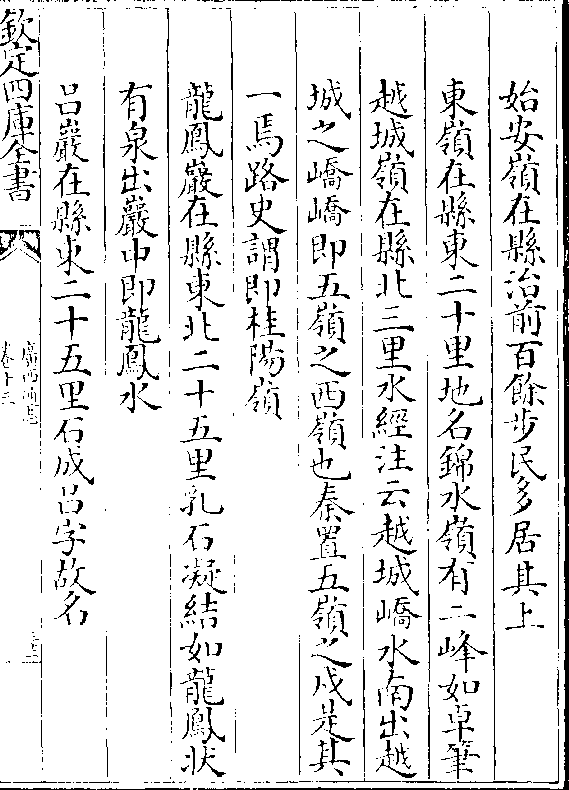 始安嶺在縣治前百餘步民多居其上
東嶺在縣東二十里地名錦水嶺有二峰如卓筆
越城嶺在縣北三里水經注云越城嶠水南出越
城之嶠嶠即五嶺之西嶺也秦置五嶺之戍是其
一焉路史謂即桂陽嶺
龍鳳巖在縣東北二十五里乳石凝結如龍鳳狀
有泉出巖中即龍鳳水
吕巖在縣東二十五里石成吕字故名
欽定四庫全書
廣西通志